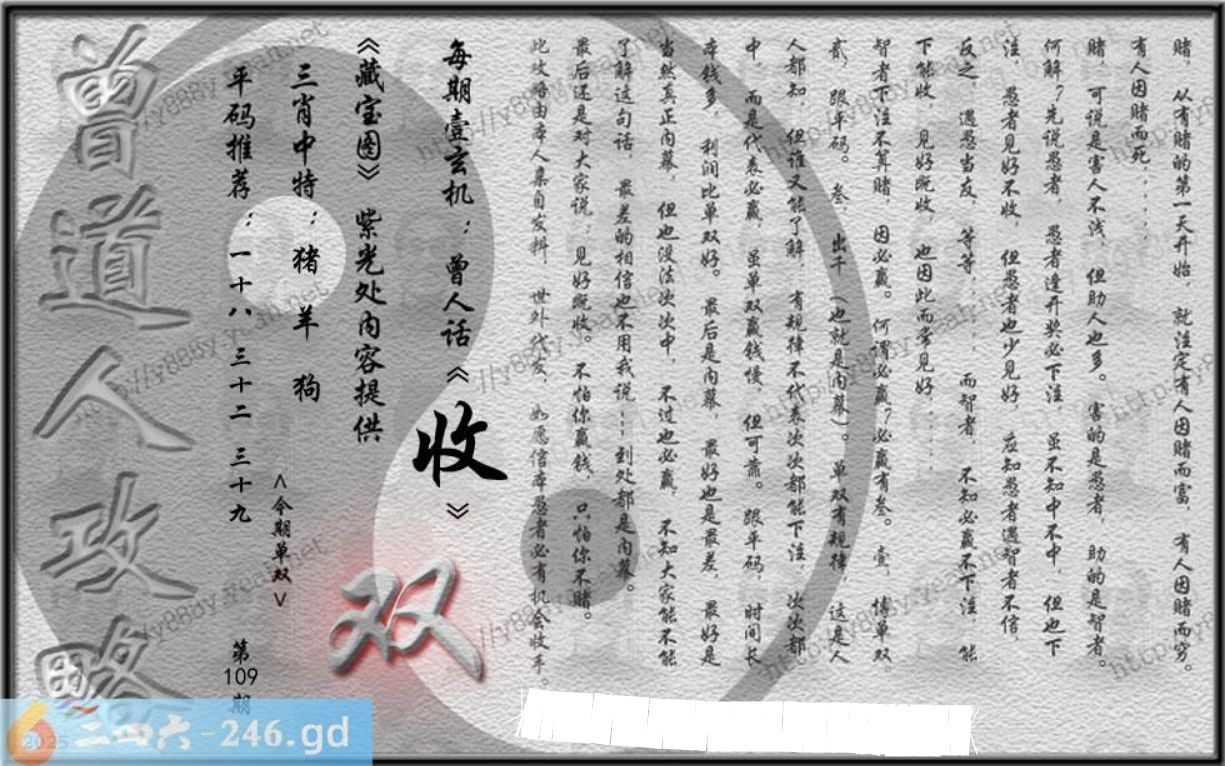 赌，从有赌的第一天开始，就注定有人因赌而富，有人因赌而穷。
有人因赌而死......
赌，可说是害人不浅，但助人也多。害的是愚者，助的是智者。
何解？先说愚者，愚者逢开奖必下注，虽不知中不中，但也下
注，愚者见好不收，但愚者也少见好，应知愚者遇智者不信，
反之，遇愚当友，等等...，而智者，不知必赢不下注，能
下能收，见好既收，也因此而常见好......
智者下注不算赌，因必赢。何谓必赢？必赢有叁。壹，博单双，
贰，跟平码。叁，出千（也就是内幕）。单双有规律，这是人
人都知，但谁又能了解，有规律不代表次次都能下注，次次都
中，而是代表必赢，虽单双赢钱慢，但可靠。跟单码，时间长
本钱多，利润比单双好。最后是内幕，最好也是最差，最好是
当然真正内幕，但也没法次次中，不过也必赢，不知大家能不能
了解这句话，最差的相信也不用我说...到处都是内幕。
最后还是对大家说：见好既收。不怕你赢钱，只怕你不赌。
此攻略由本人亲自发料，世外代发，如愿信本愚者必有机会收手。
每期壹玄机：曾人话《收》
《藏宝图》紫光处内容提供
三肖中特：猪 羊 狗
平码推荐：一十八 三十二 三十九
<今期单双>
双
第109期
曾道人攻略
2025
二四六-246.gd
http://y888y.yeah.net